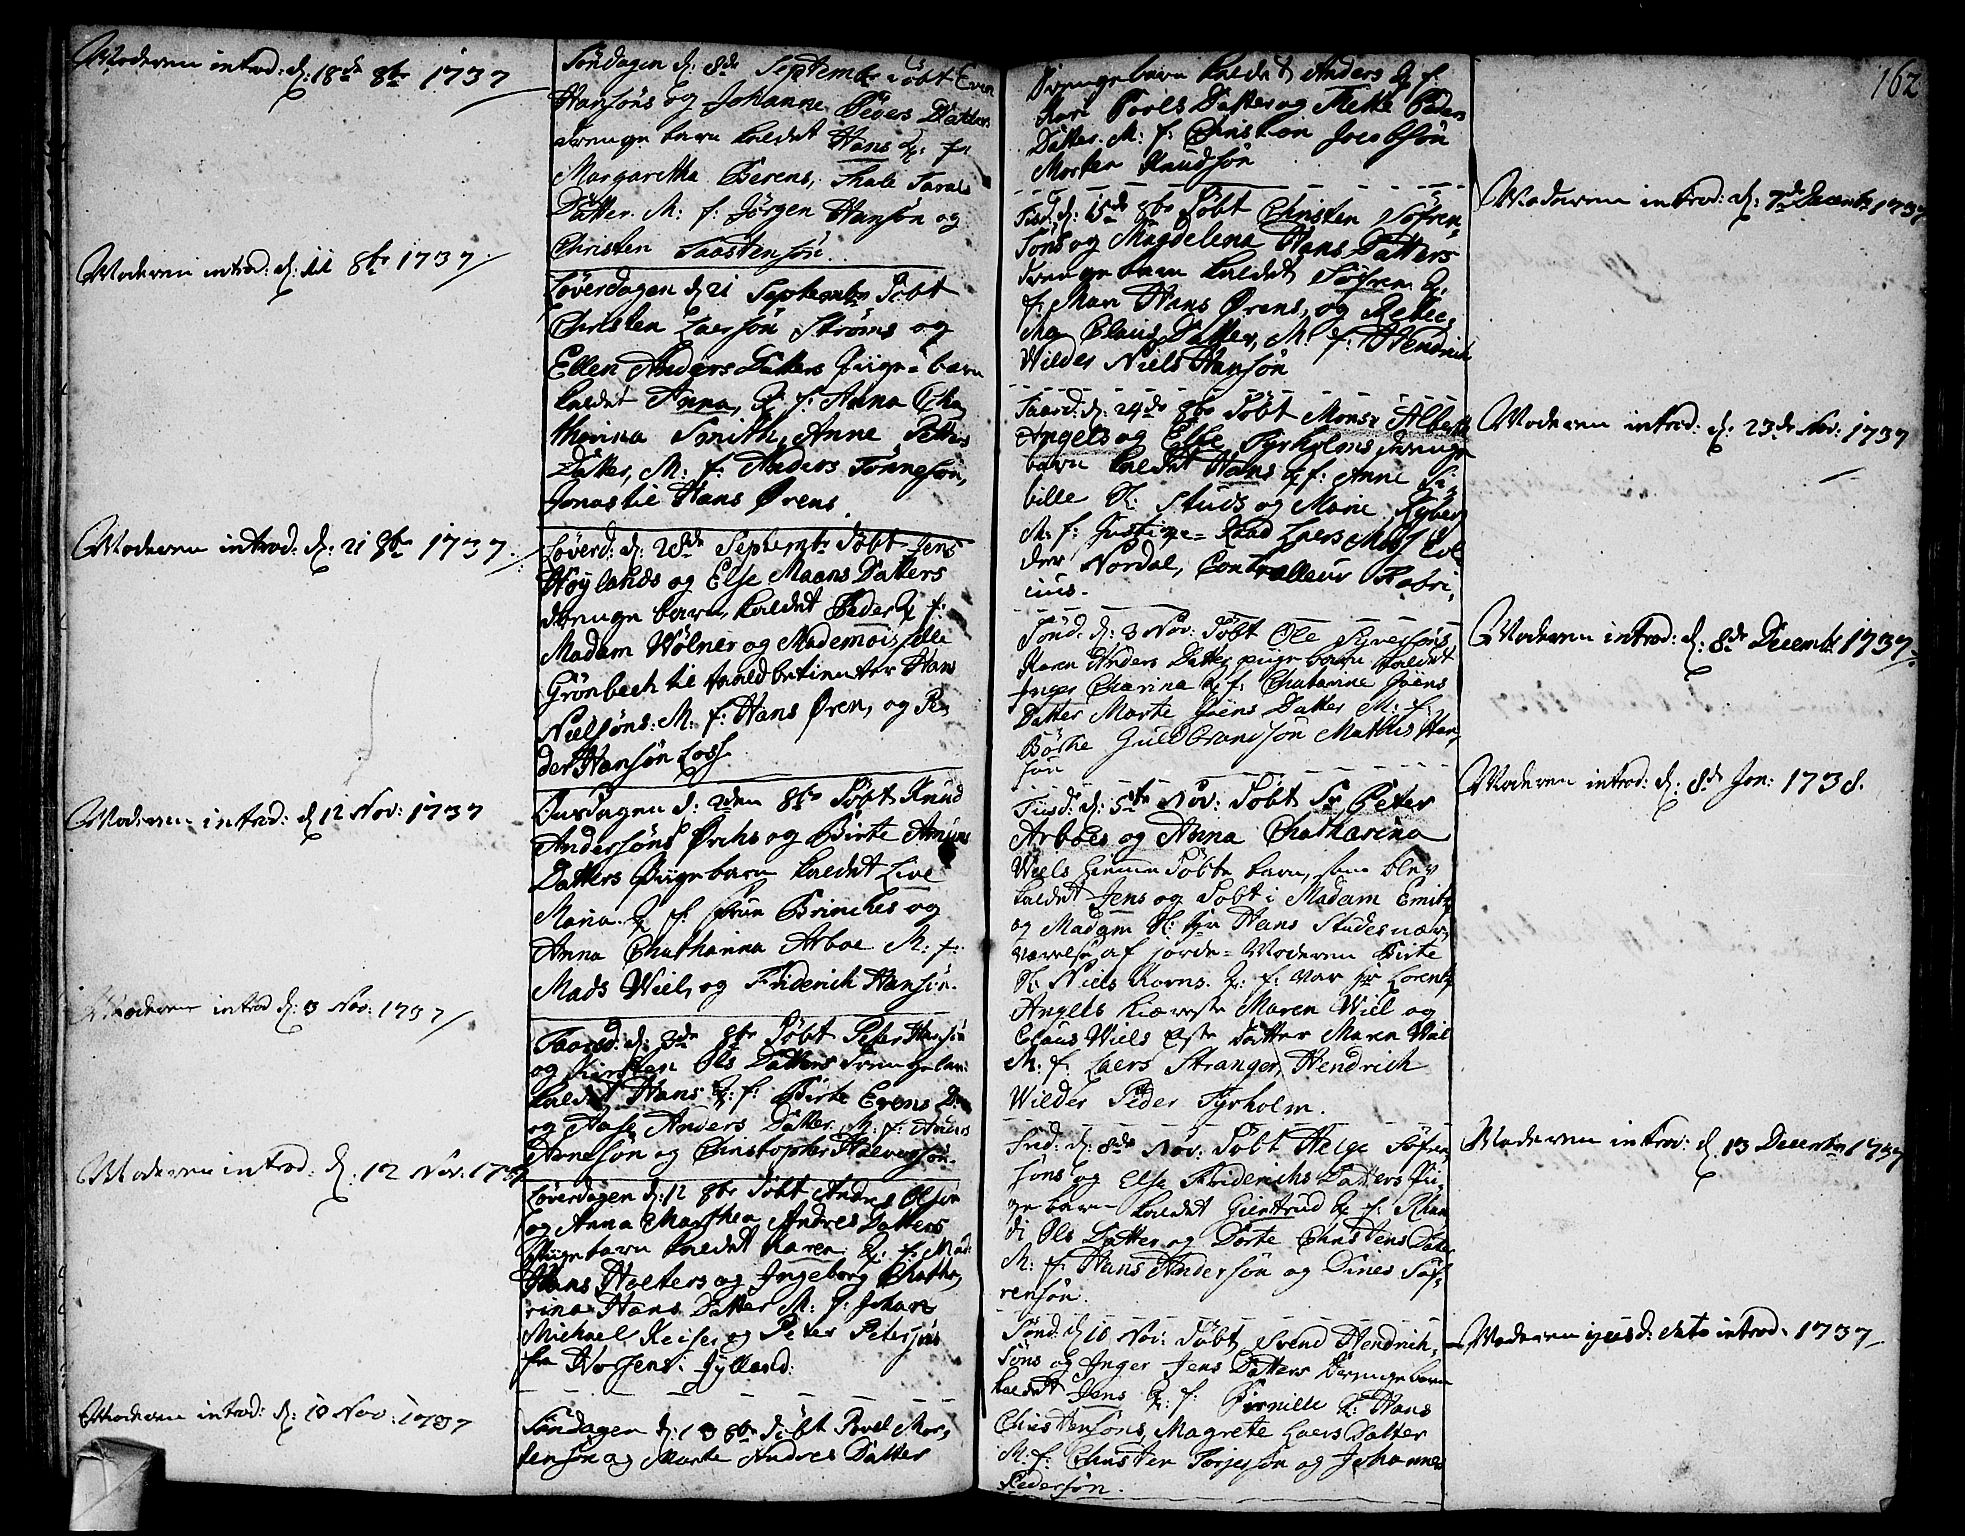 Moderen introd: d: 18de 8br 1737
Moderen introd: d: 11 8br 1737
Moderen introd: d: 21 8br 1737
Moderen introd: d 12 Nov: 1737
Moderen introd d: 3 Nov: 1737
Moderen introd: d. 12 Nov. 1737
Moderen introd: d: 10 Nov: 1737
Søndagen d: 8de Septembr døbt Even
Hansøns og Johanne Peders Datters
drengebarn kaldet Hans Q: f:
Margaretha Berens, Thale Tarals
Datter. M: f: Jørgen Hansøn og
Christen Taastensøn.
Løverdagen d 21 Septembr døbt
Christen Larsøn Strøms og
Ellen Anders Datters Piige-barn
kaldet Anna, Q f: Anna Cha
tharina Smith, Anne Petters
Datter, M: f: Anders Tønnesøn,
Jonas til Hans Ørens.
Løverd: d: 28de Septembr døbt Jens
Høylands og Else Maans Datters
drenge barn, kaldet Peder Q f:
Madam Wølner og Mademoiselle
Grønbech til betienter Hans
Nielsøns: M: f: Hans Øren, og Pe
der Hansøn Loss.
Onsdagen d: 2den 8br døbt Knud
Andersøns Ørchs og Birte
Datters Piigebarn kaldet Live
Maria Q f: Frue Brinches og
Anna Chathanna Arboe M: f:
Mads Wiel, og Friderich Hansøn.
Taarsd: d: 3de 8br døbt Peter Hansøn
og Kirsten Ols Datters drengebarn
kaldet Hans Q: f: Birte Evens D
og Aase Anders Datter M: f: Anders
Arnesøn og Christopher Halvorsøn.
Løverdagen d: 12 8br døbt Andres Olsøn
og Anna Marthea Andres Datters
Piigebarn kaldet Karen Q: f: Mad:
Hans Holters og Ingeborg Chatha
rina Hans Datter M: f: Johan
Michael Keiser og Peter Petersøns
fra Horsens. Jylland:
Søndagen d: 13 8br døbt Povel Mor,
tensøn og Marte Andres Datter
162
Drengebarn kaldet Anders Q f:
Kari Povls Datter og Mette Peders
Datter. M: f: Christian Jacobsøn
Morten Knudsøn
Tisd: d: 15de 8br døbt Christen Søfren,
søns og Magdelena Hans Datters
drenge barn kaldet Søfren Q.
f: Mari Hans Ørens, og Rebec,
cha Claus Datter, M: f: Hendrich
Wilder Niels Hansøn
Taarsd: d: 24de 8br døbt Monsr Albert
Angels og Else Tyrholms drenge
barn kaldet Hans Q f: Anne Si,
bille Sl: Studs og Marie Ryberg
M: f: Justitie-Raad Laers
der Nordal, Contralleur Fabri,
cius.
Sønd: d: 3 Nov: døbt Ole Syversøns
Karen Anders Datter piigebarn kaldet
Inger Charina Q f: Chatarine Joens
Datter Marte Joens Datter M: f:
Børke Guldbrandsøn Mathis Han,
søn
Tiisd: d: 5te Nov: døbt Sr Peter
Arboes og Anna Chatharina
Wiels hiemme døbte barn, som blev
kaldet Jens og døbt i Madam Emitz
og Madam Sl: Hr Hans Studes nær,
værelse af jorde-Moderen Birte
Sl: Niels Korns. Q: f: var Hr Lorentz
Angels kiæreste Maren Wiel og
Claus Wiels eldste datter Maren Wiel
M: f: Laers Stranger, Hendrich
Wilder Peder Tyrholm.
Fred: d: 8de Nov: døbt Helge Søfren
søns og Else Friderichs Datters Pii,
ge barn kaldet Giertrud Q f: Ran
di Ols Datter og Dorte Christens Datter
M: f: Hans Andersøn og Dines Søf,
rensøn.
Sønd: d 10 Nov: døbt Svend Hendrich,
søns og Inger Jens Datters Drengebarn
kaldet Jens Q f: Pernille Hans
Christensøns, Magrete Laers Datter
M: f: Christen Torjesøn og Johannes
Pedersøn.
Moderen introd: d: 7de Decembr 1737
Moderen introd: d: 23de Nov: 1737
Moderen introd: d: 8de Decembr 1737
Moderen introd: d: 8de Jan: 1738.
Moderen introd: d 13 Decembr 1737
Moderen introd: 1737